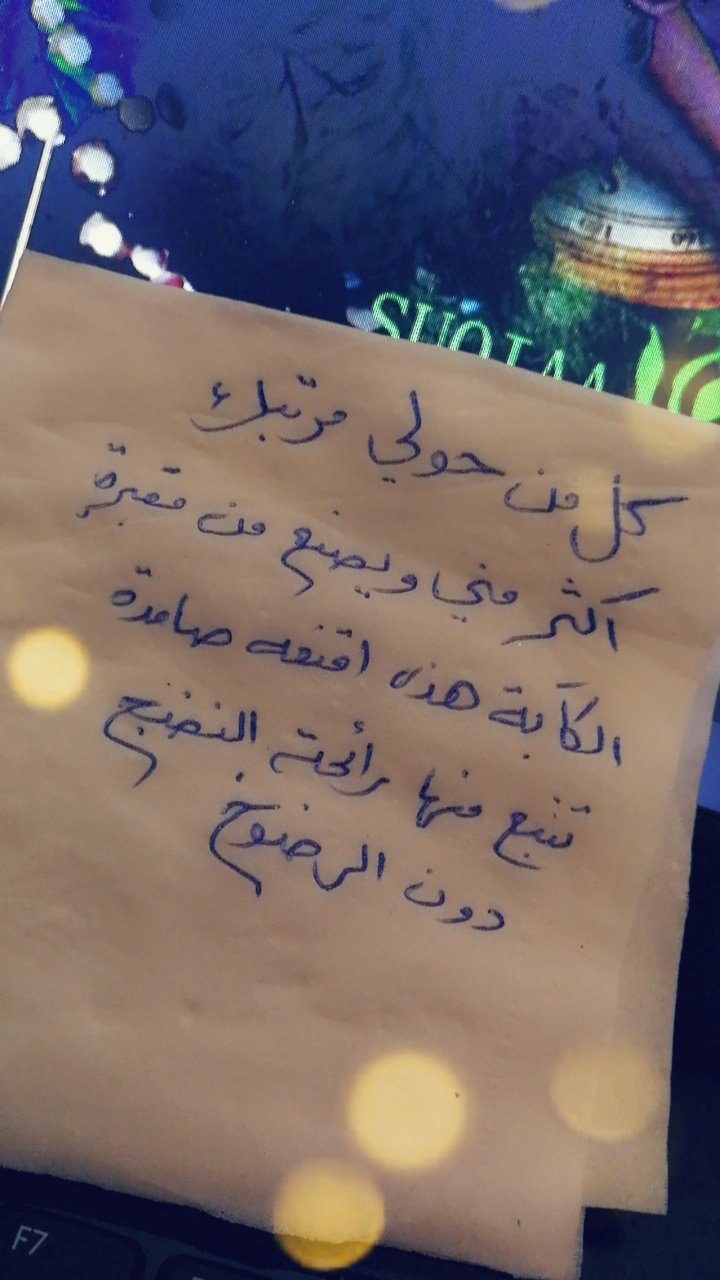 كل من حولي مرتبك
اكثر مني ويصنع من مقبرة
الكآبة هذه اقنعه صامدة
تنبع منها رائحة النضج
دون الرضوخ
F7